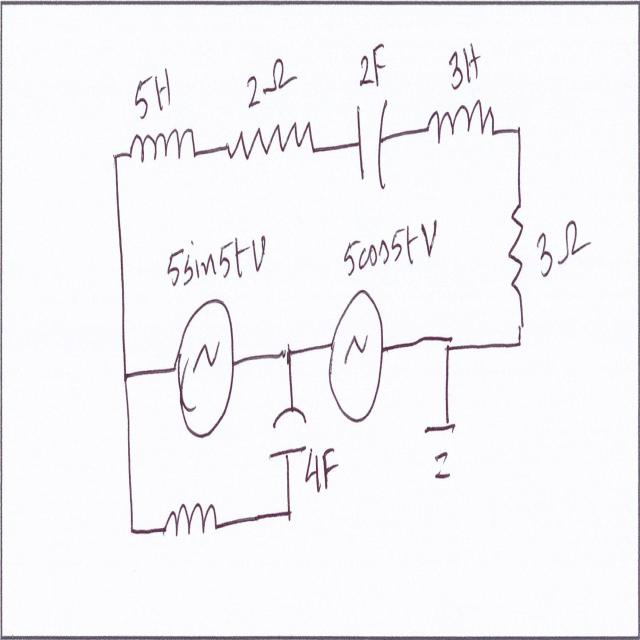 5H 2Ω 2F 3H
5sin5tV 5cos5tV 3Ω
4F
2